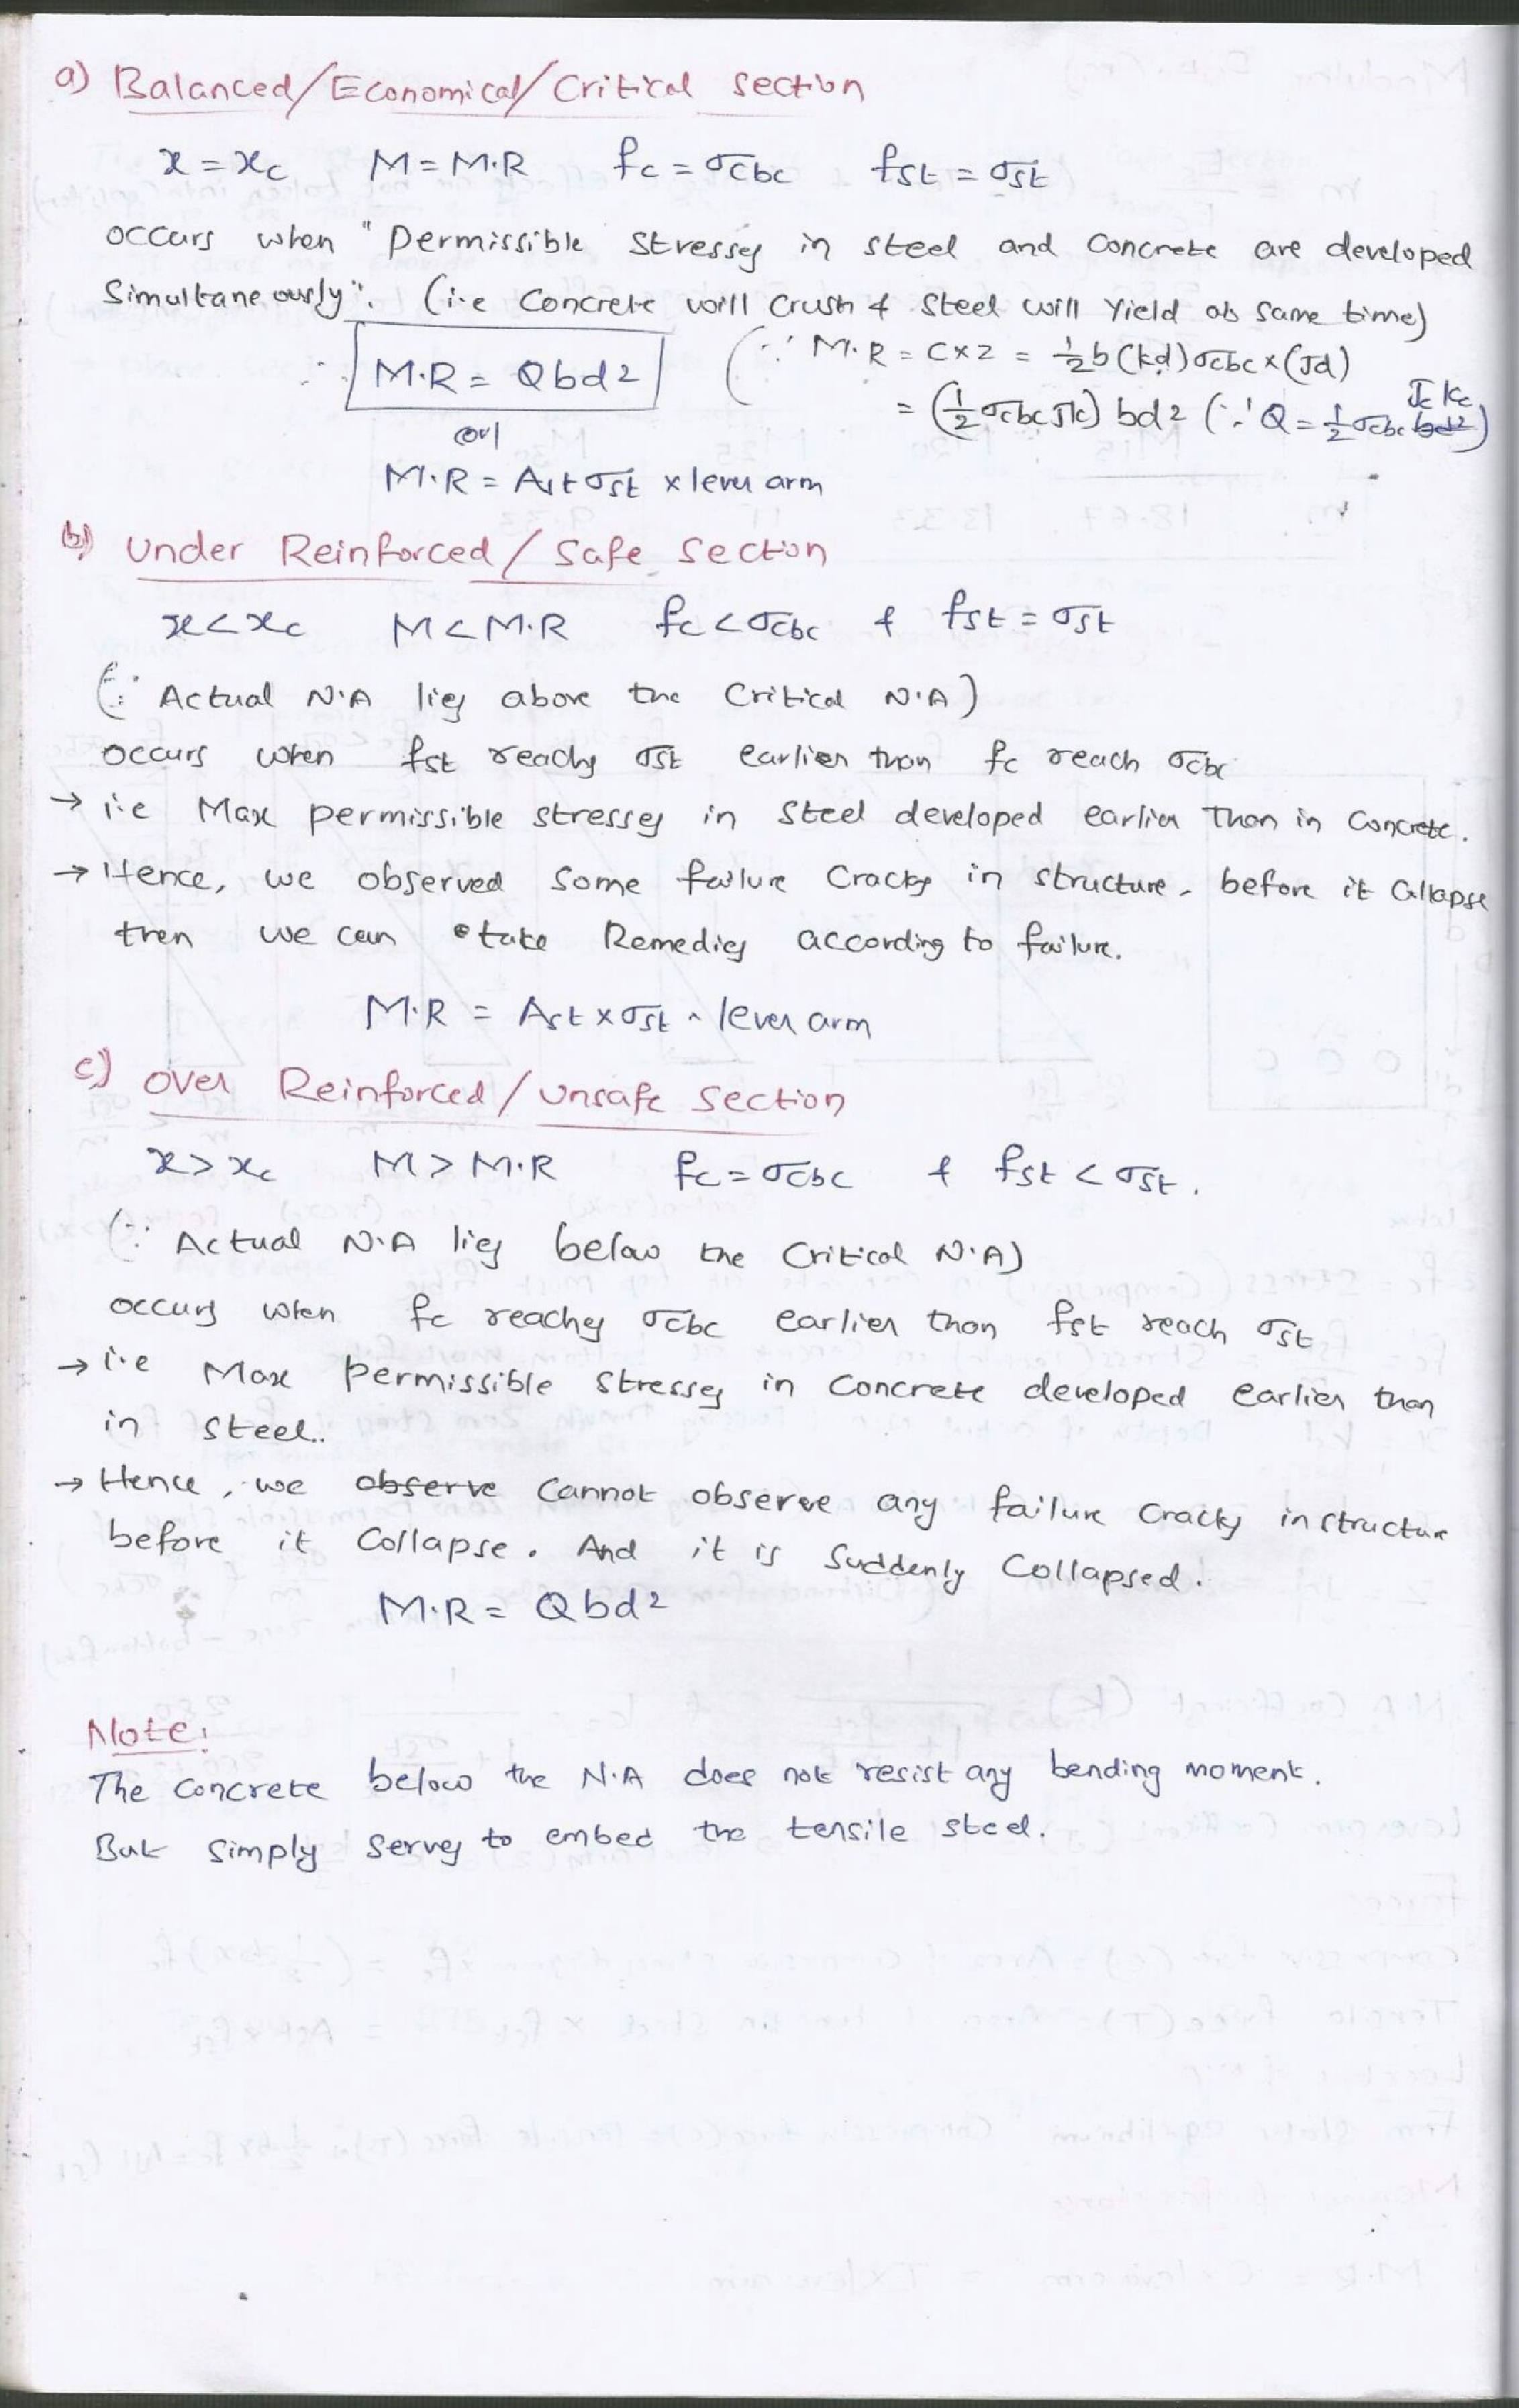 a) Balanced/Economical/Critical section
x = xc M = M.R fc = σcbc fst = σst
occurs when "permissible stresses in steel and concrete are developed
simultaneously". (i.e concrete will crush & steel will yield at same time)
∴ M.R = Qbd2 (∵ M.R = C×z = 1/2 b(kd)σcbc×(Jd)
= (1/2 σcbc Jk) bd2 (∵ Q = 1/2 σcbc Jc kc)
(or)
M.R = Ast σst × lever arm
b) Under Reinforced / Safe section
x < xc M < M.R fc < σcbc & fst = σst
(∵ Actual N.A lies above the critical N.A)
occurs when fst reaches σst earlier than fc reach σcbc
→ i.e Max permissible stresses in steel developed earlier than in concrete.
→ Hence, we observed some failure cracks in structure, before it collapse
then we can take Remedies according to failure.
M.R = Ast × σst × lever arm
c) Over Reinforced / Unsafe section
x > xc M > M.R fc = σcbc & fst < σst.
(∵ Actual N.A lies below the critical N.A)
occurs when fc reaches σcbc earlier than fst reach σst
→ i.e Max permissible stresses in concrete developed earlier than
in steel..
→ Hence, we observe cannot observe any failure cracks in structure
before it collapse. And it is suddenly collapsed.
M.R = Qbd2
Note:
The concrete below the N.A does not resist any bending moment.
But simply serves to embed the tensile steel.